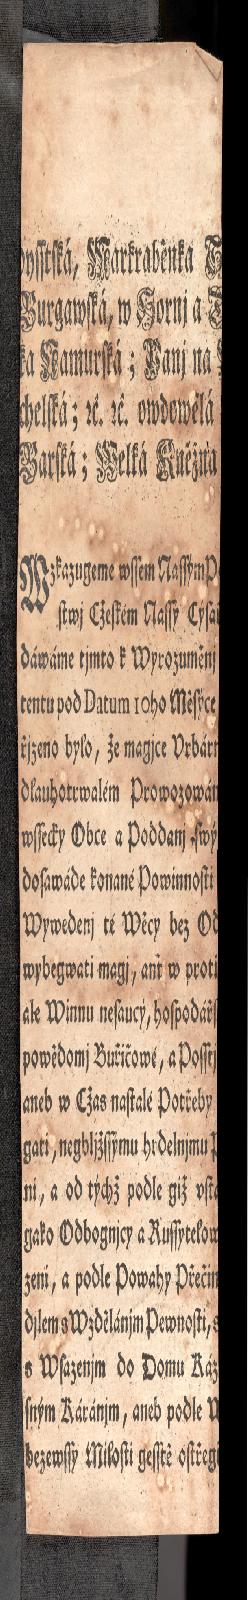 ysstská, Markraběnka
Burgawská, w Hornj a
ka Kamurská; Panj na
chelská; ꝛc. ꝛc. owdowělá
Barská; Welká Kněžna
Wzkazugeme wssem Nassým
stwj Cžeském Nassy Cýsa
dáwáme tjmto k Wyrozuměnj
tentu pod Datum 10ho Měsýce
řjzeno bylo, že magjce Vrbár
dlauhotrwalém Prowozowán
wssecky Obce a Poddanj swý
dosawáde konané Powinnosti
Wywedenj té Wěcy bez Od
wybegwati magj, aniž w proti
ale Winnu nesaucý, hospodářs
powědomj Buřičowé, a Posstj
aneb w Cžas nastalé Potřeby
gati, negbljžssýmu hrdelnjmu
ni, a od týchž podle giž vsta
gako Odbognjcy a Russytelow
zeni, a podle Powahy Přečin
djlem s Wzdělánjm Pewnosti, s
s Wsazenjm do Domu Káz
sným Káránjm, aneb podle
bezewssý Milosti gesstě ostřeg